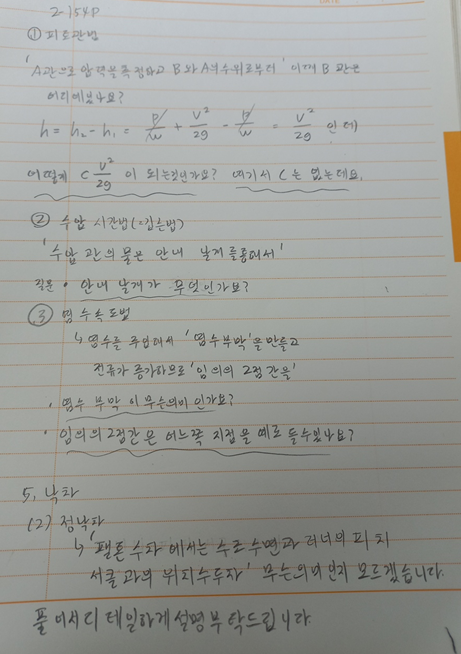 2-154P
① 피토관법
'A관으로 압력을 측정하고 B와 A의 수위로부터' 이때 B관은
어디에있나요?
h = h₂ - h₁ = p/w + v²/2g - p/w = v²/2g 인데
어떻게 c v²/2g 이 되는것인가요? 여기서 C는 없는데요.
② 수압 시간법(=깁슨법)
'수압 관의 물은 안내 날개를통해서'
질문 · 안내 날개가 무엇인가요?
③ 염수속도법
↳ 염수를 주입해서 '염수부막'을만들고
전류가 증가하므로 '임의의 2점간을'
· 염수 부막 이 무슨의미 인가요?
· 임의의 2점간 은 어느쪽 지점을 예로 들수있나요?
5. 낙차
(2) 정낙차
↳ '펠톤 수차 에서는 수조수면과 러너의 피치
서클과의 위치수두차' 무슨의미인지 모르겠습니다.
풀이서 디테일하게설명부탁드립니다.